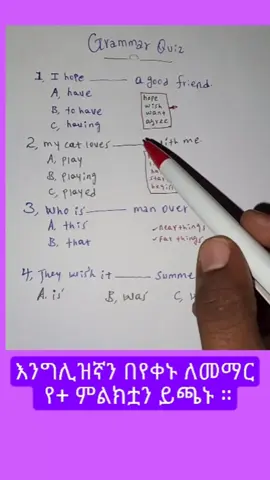 Grammar Quiz
1. I hope ______ a good friend.
A, have
B, to have
C, having
hope
wish
want
agree
2, my cat loves ______ with me.
A. play
B, playing
C, played
3, Who is ______ man over
A. this
B, that
✓near things
✓Far things
4, They wish it ______ summe
A. is
B, was
C,
እንግሊዝኛን በየቀኑ ለመማር
የ+ ምልክቷን ይጫኑ ።